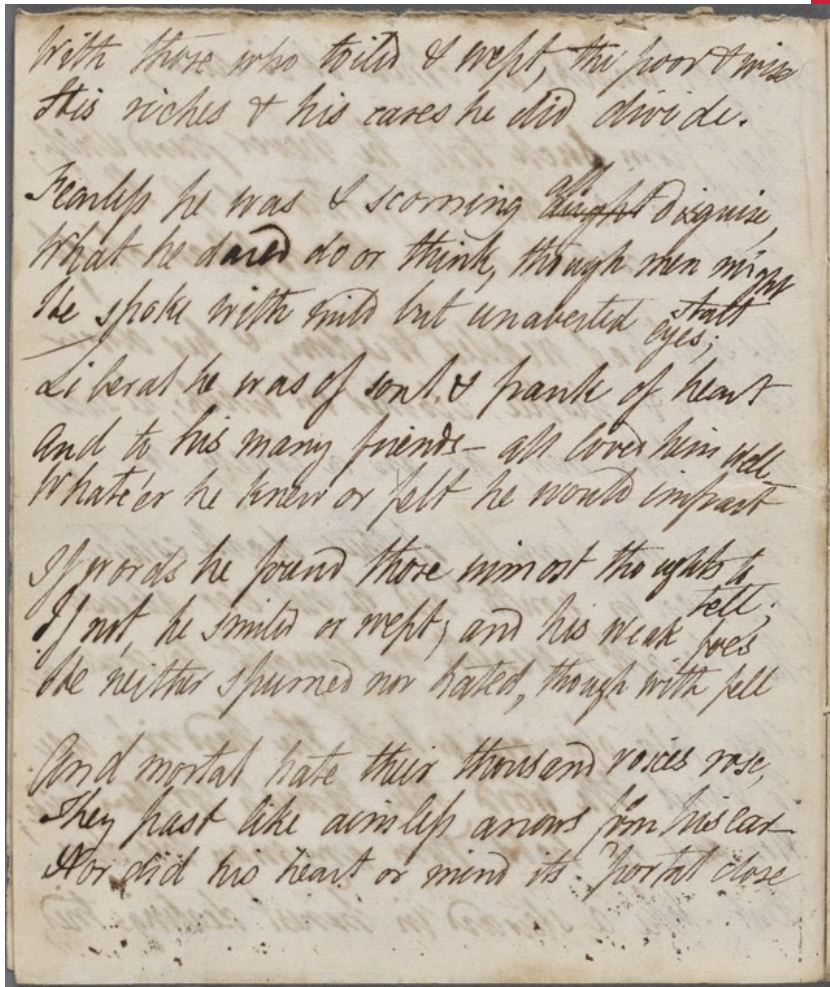 With those who toild & wept, the poor & wise
His riches & his cares he did divide.
Fearless he was & scorning all disguise,
What he dared do or think, though men might
start
He spoke with mild but unaverted
eyes;
Liberal he was of soul & frank of heart
And to his many friends – all loved him well –
Whate'er he knew or felt he would impart
If words he found those inmost thoughts to
tell;
If not, he smiled or wept; and his weak foes
He neither spurned nor hated, though with fell
And mortal hate their thousand voices rose,
They past like aimless arrows from his ear
Nor did his heart or mind its portal close